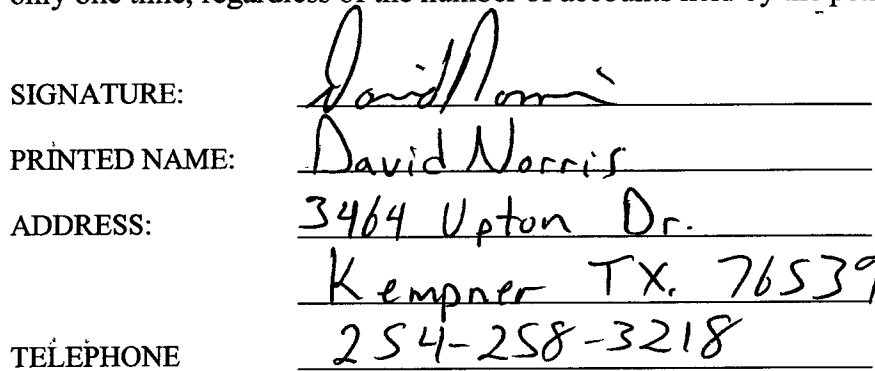 only one time, regardless of the number of accounts held by the
SIGNATURE: David Norris
PRINTED NAME: David Norris
ADDRESS: 3464 Upton Dr.
Kempner TX. 76539
TELEPHONE 254-258-3218